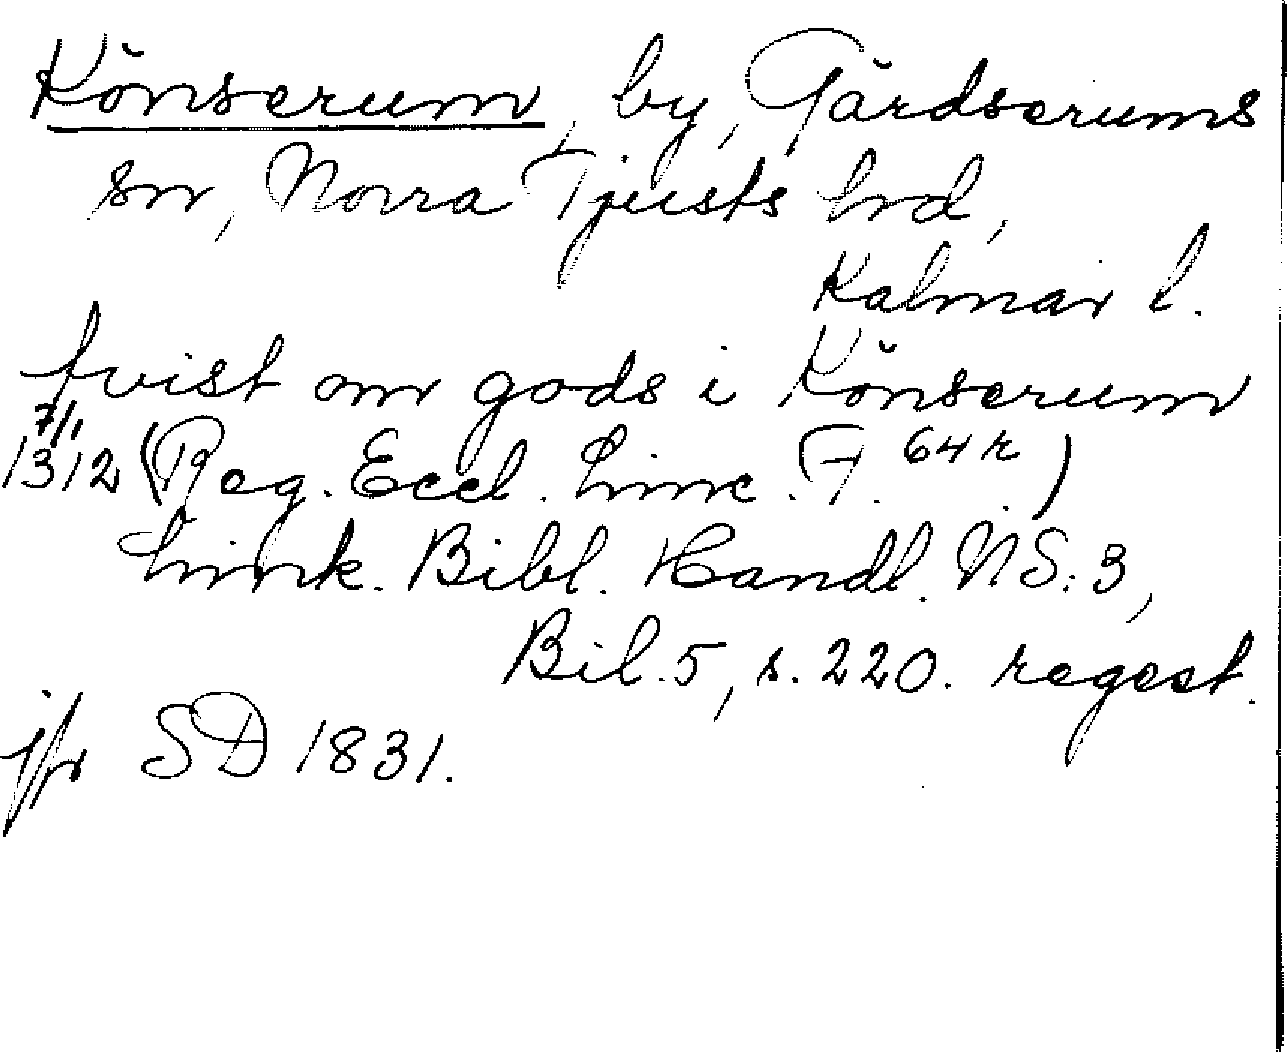 Könserum, by, Gärdserums
sn, Norra Tjusts hrd,
Kalmar l.
tvist om gods i Könserum
7/1
1312 (Reg. Eccl. Linc. F. 64 r)
Link. Bibl. Handl. NS: 3,
Bil. 5, s. 220. regest.
jfr SD 1831.